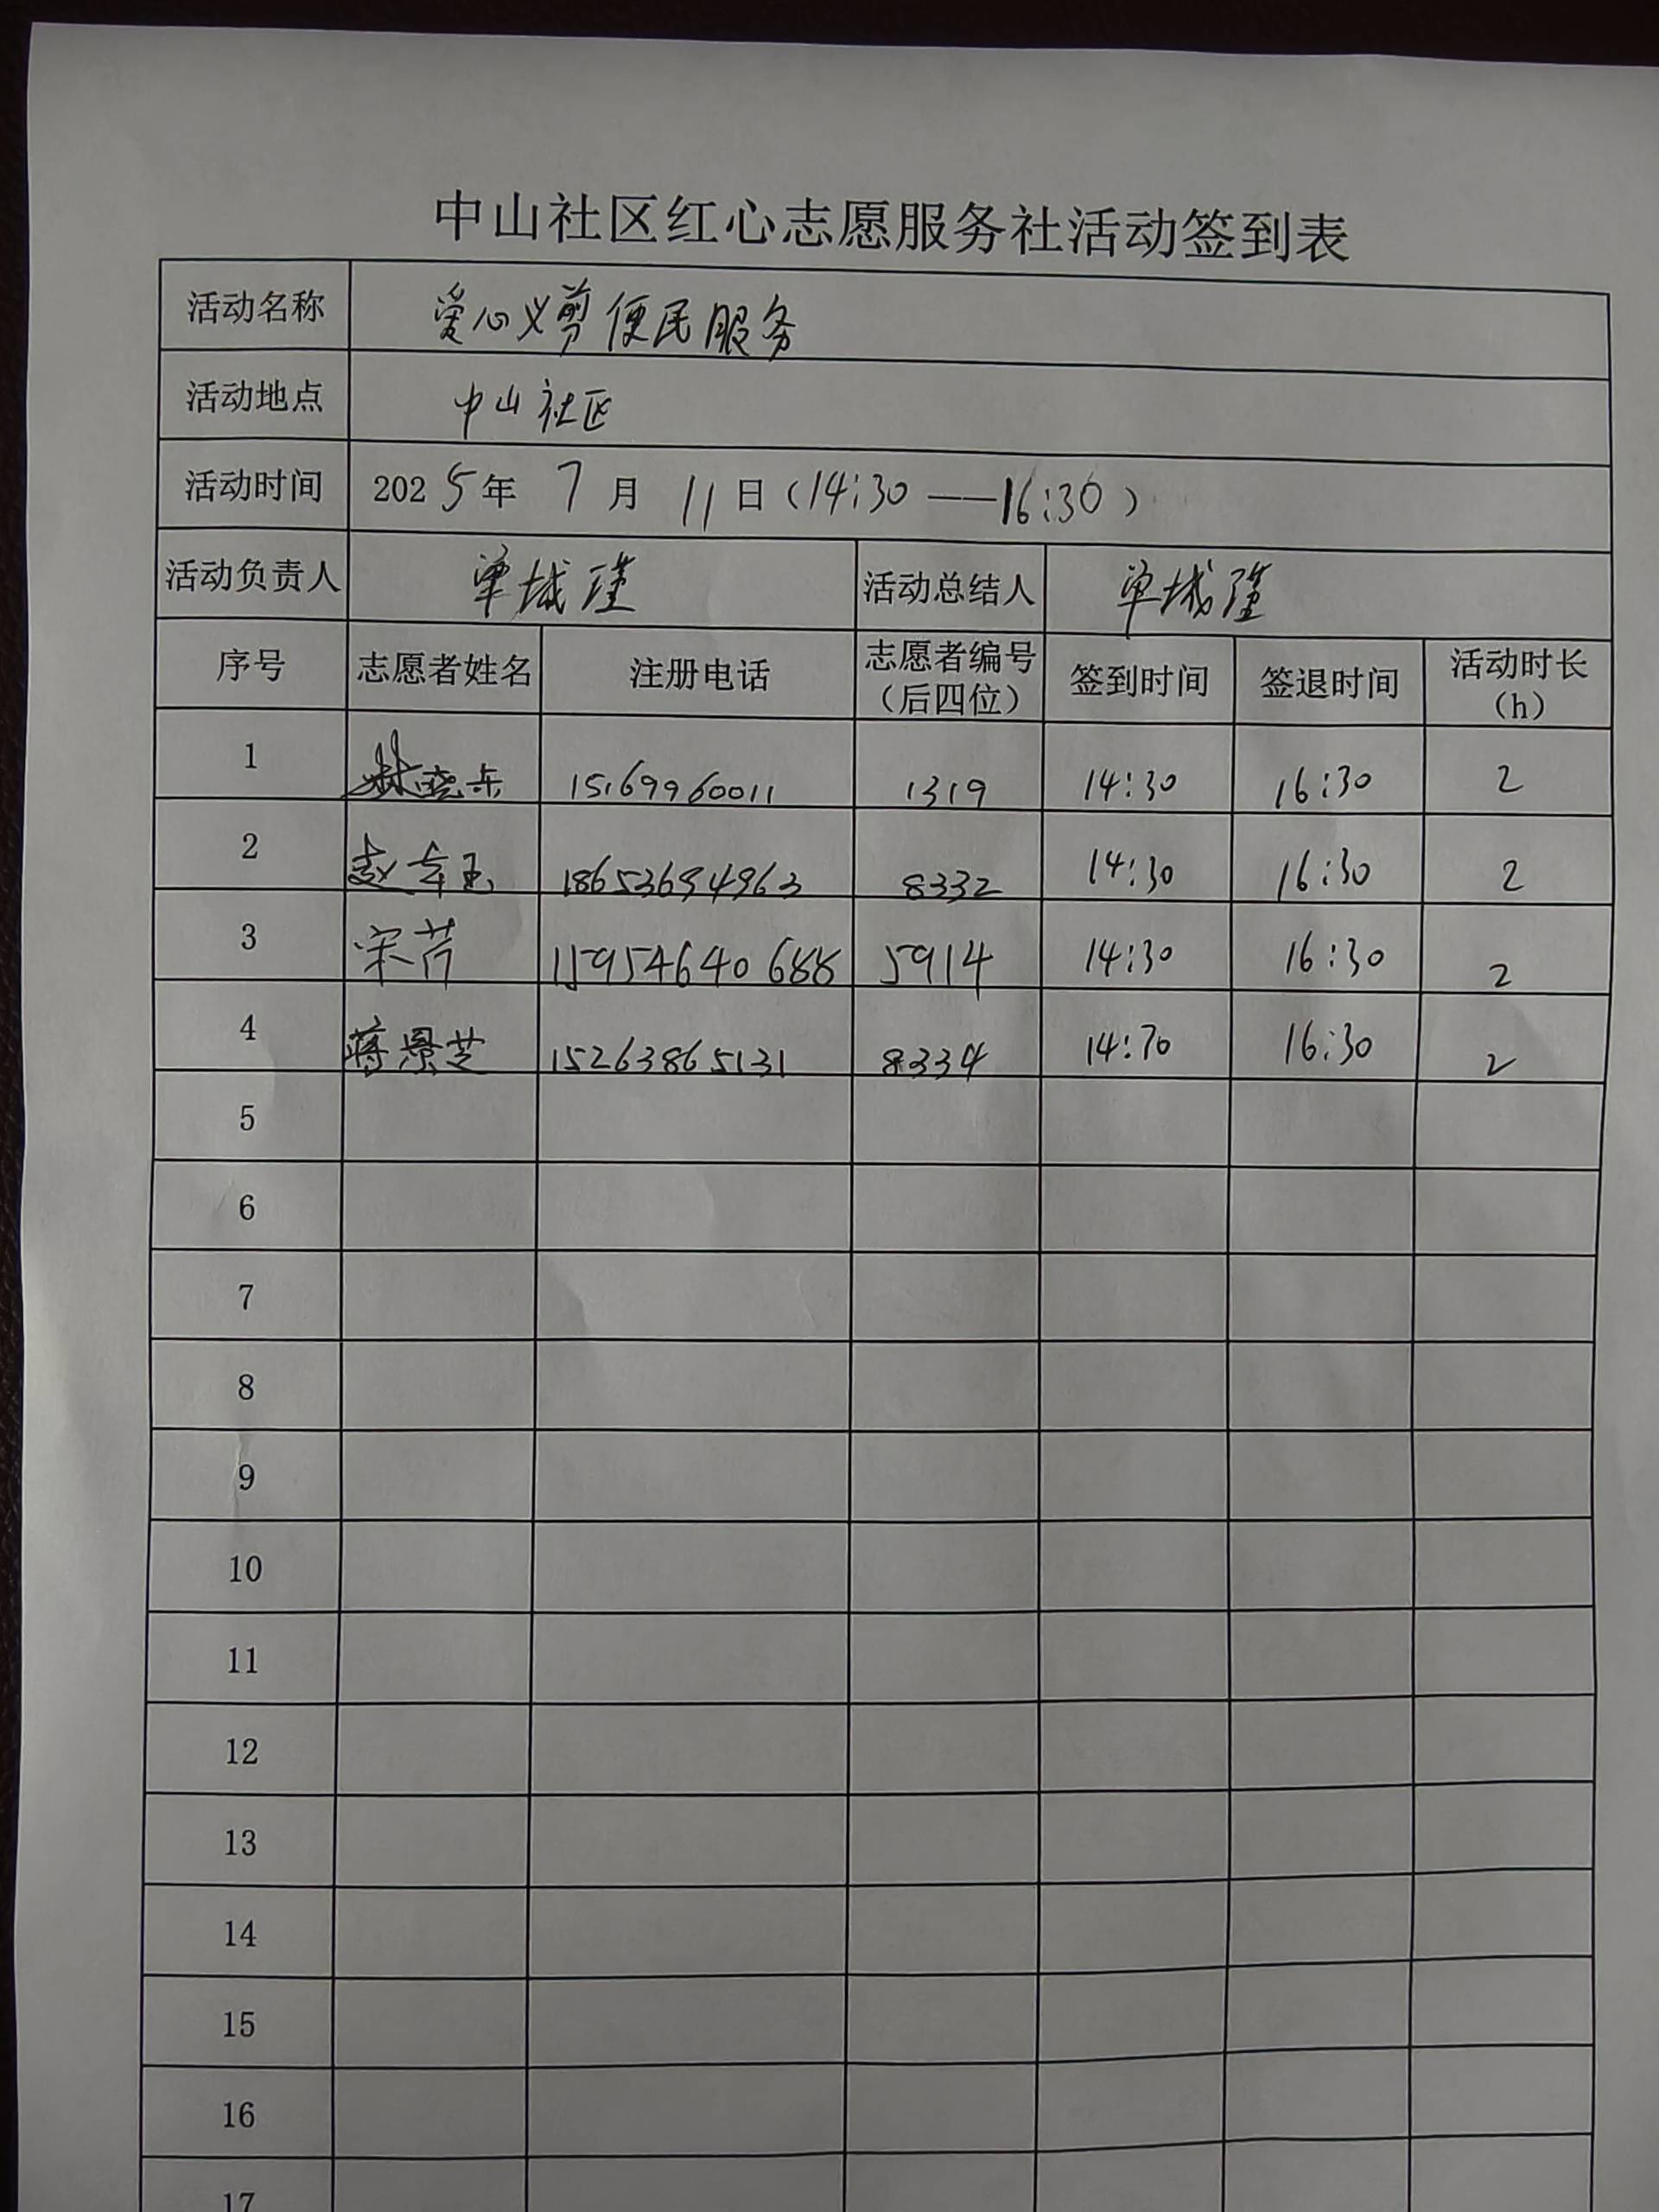 中山社区红心志愿服务社活动签到表
活动名称 爱心义剪便民服务
活动地点 中山社区
活动时间 2025年 7月 11日(14:30——16:30)
活动负责人 单城瑾 活动总结人 单城瑾
序号 志愿者姓名 注册电话 志愿者编号(后四位) 签到时间 签退时间 活动时长(h)
1 林晓东 15169960011 1319 14:30 16:30 2
2 赵 玉 18653694963 8332 14:30 16:30 2
3 宋芹 15954640688 5914 14:30 16:30 2
4 蒋景芝 15263865131 8334 14:70 16:30 2
5
6
7
8
9
10
11
12
13
14
15
16
17